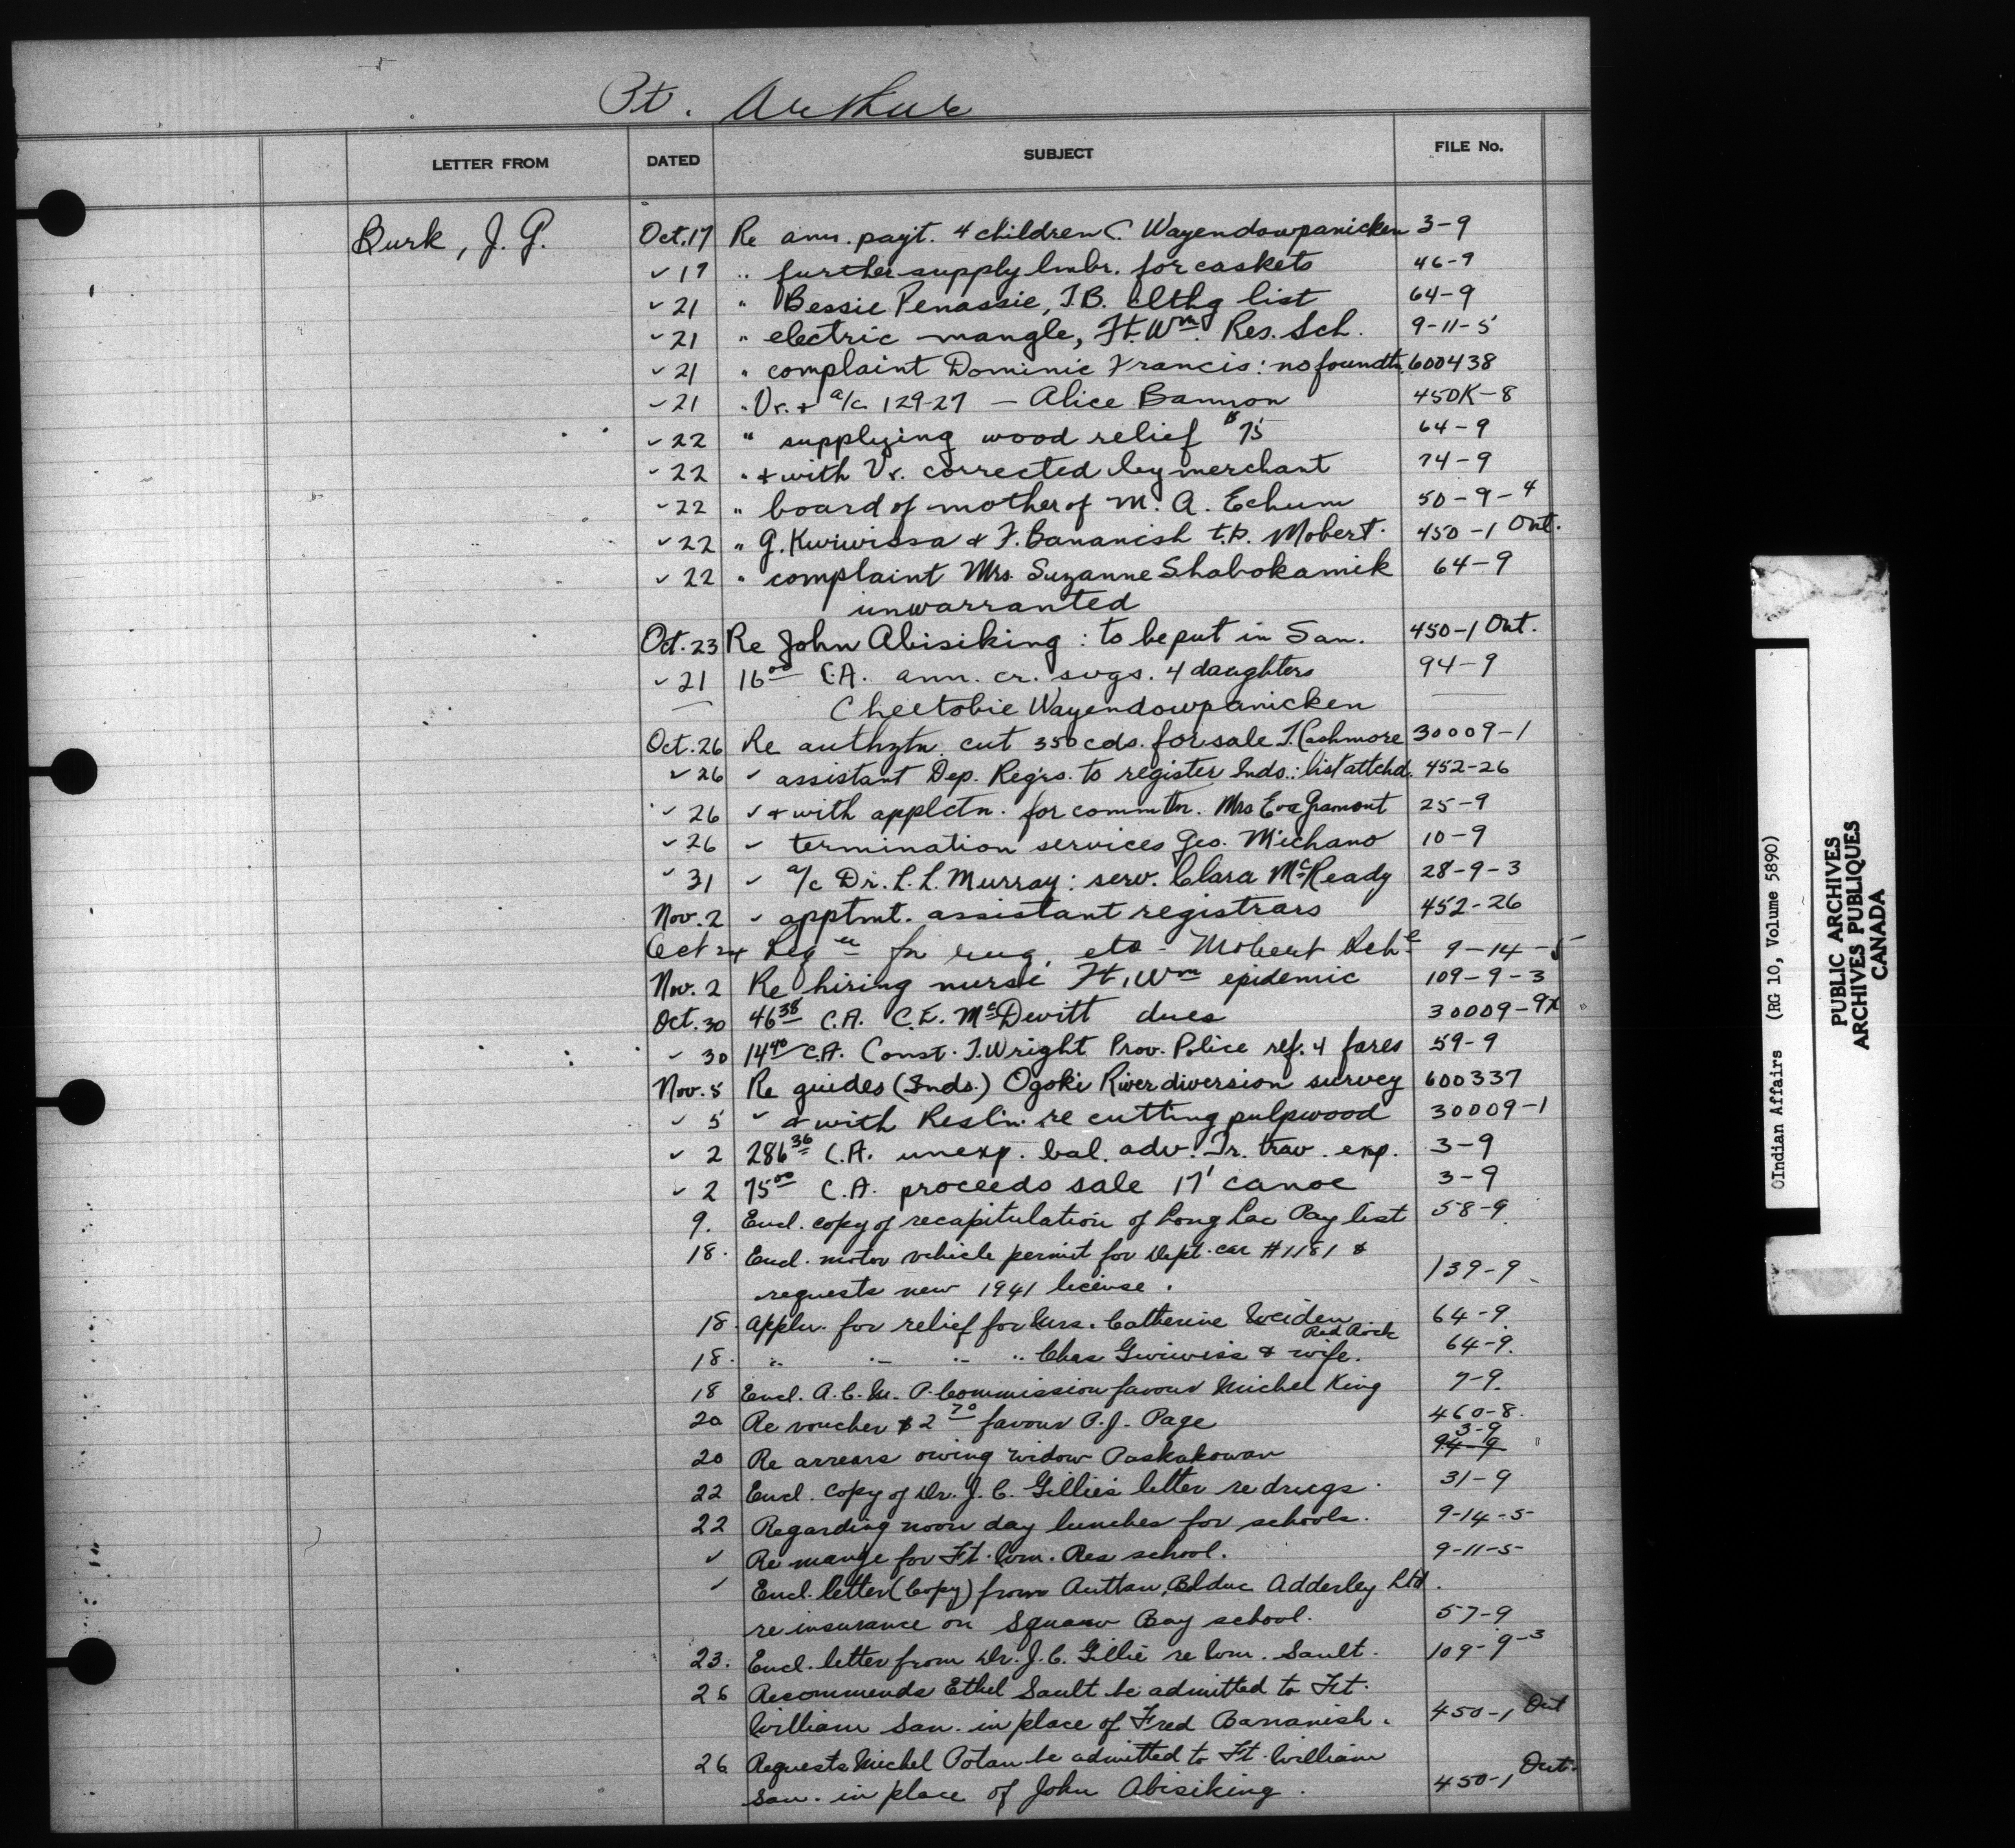 Pt. Arthur
LETTER FROM DATED SUBJECT FILE No.
Burk, J. G. Oct. 17 Re ann. pay't. 4 children C. Wayendowpanicken 3-9
✓ 17 " further supply lmbr. for caskets 46-9
✓ 21 " Bessie Penassie, T.B. clthg list 64-9
✓ 21 " electric mangle, Ft. Wm. Res. Sch. 9-11-5
✓ 21 " complaint Dominic Francis: no foundtn. 600438
✓ 21 " Vr. + a/c 129-27 — Alice Bannon 450K-8
✓ 22 " supplying wood relief $75 64-9
✓ 22 " + with Vr. corrected by merchant 74-9
✓ 22 " board of mother of M. A. Echum 50-9-4
✓ 22 " G. Kwiwissa + F. Bananish t.b. Mobert. 450-1 Ont.
✓ 22 " complaint Mrs. Suzanne Shabokamik 64-9
unwarranted
Oct. 23 Re John Abisiking: to be put in San. 450-1 Ont.
✓ 21 16.00 C.A. ann. cr. svgs. 4 daughters 94-9
Cheetobie Wayendowpanicken
Oct. 26 Re authztn. cut 350 cds. for sale J. Cashmore 30009-1
✓ 26 ✓ assistant Dep. Reg'rs. to register Inds.: list attchd. 452-26
✓ 26 ✓ + with applctn. for commtn. Mrs Eva Gramont 25-9
✓ 26 ✓ termination services Geo. Michano 10-9
✓ 31 ✓ a/c Dr. L. L. Murray: serv. Clara McReady 28-9-3
Nov. 2 ✓ apptmt. assistant registrars 452-26
Oct 24 Reqn for rug, etc - Mobert Sch. 9-14-5
Nov. 2 Re hiring nurse Ft. Wm epidemic 109-9-3
Oct. 30 46.38 C.A. C.E. McDevitt dues 30009-9x
✓ 30 14.40 C.A. Const. J. Wright Prov. Police ref. 4 fares 59-9
Nov. 5 Re guides (Inds.) Ogoki River diversion survey 600337
✓ 5 ✓ + with Resl'n. re cutting pulpwood 30009-1
✓ 2 286.36 C.A. unexp. bal. adv. Tr. trav. exp. 3-9
✓ 2 75.00 C.A. proceeds sale 17' canoe 3-9
9. Encl. copy of recapitulation of Long Lac Pay list 58-9
18. Encl. motor vehicle permit for Dept. car #1181 &
requests new 1941 license. 139-9
18. Appln. for relief for Mrs. Catherine Weiden 64-9
Red Rock
18. " " " " Chas Gwiwiss & wife. 64-9.
18 Encl. R.C.M.P. Commission favour Michel King 7-9.
20 Re voucher $2.70 favour P.J. Page 460-8.
3-9
20 Re arrears owing widow Paskakowan 94-9
22 Encl. copy of Dr. J. C. Gillie's letter re drugs. 31-9
22 Regarding noon day lunches for schools. 9-14-5
✓ Re mangle for Ft. Wm. Res school. 9-11-5
✓ Encl. letter (Copy) from Bolduc Adderley Ltd.
re insurance on Squaw Bay school. 57-9
23. Encl. letter from Dr. J. C. Gillie re Wm. Sault. 109-9-3
26 Recommends Ethel Sault be admitted to Ft.
William San. in place of Fred Bananish. 450-1 Ont
26 Requests Michel Potan be admitted to Ft. William
San. in place of John Abisiking. 450-1 Ont.
Indian Affairs (RG 10, Volume 5890)
PUBLIC ARCHIVES
ARCHIVES PUBLIQUES
CANADA